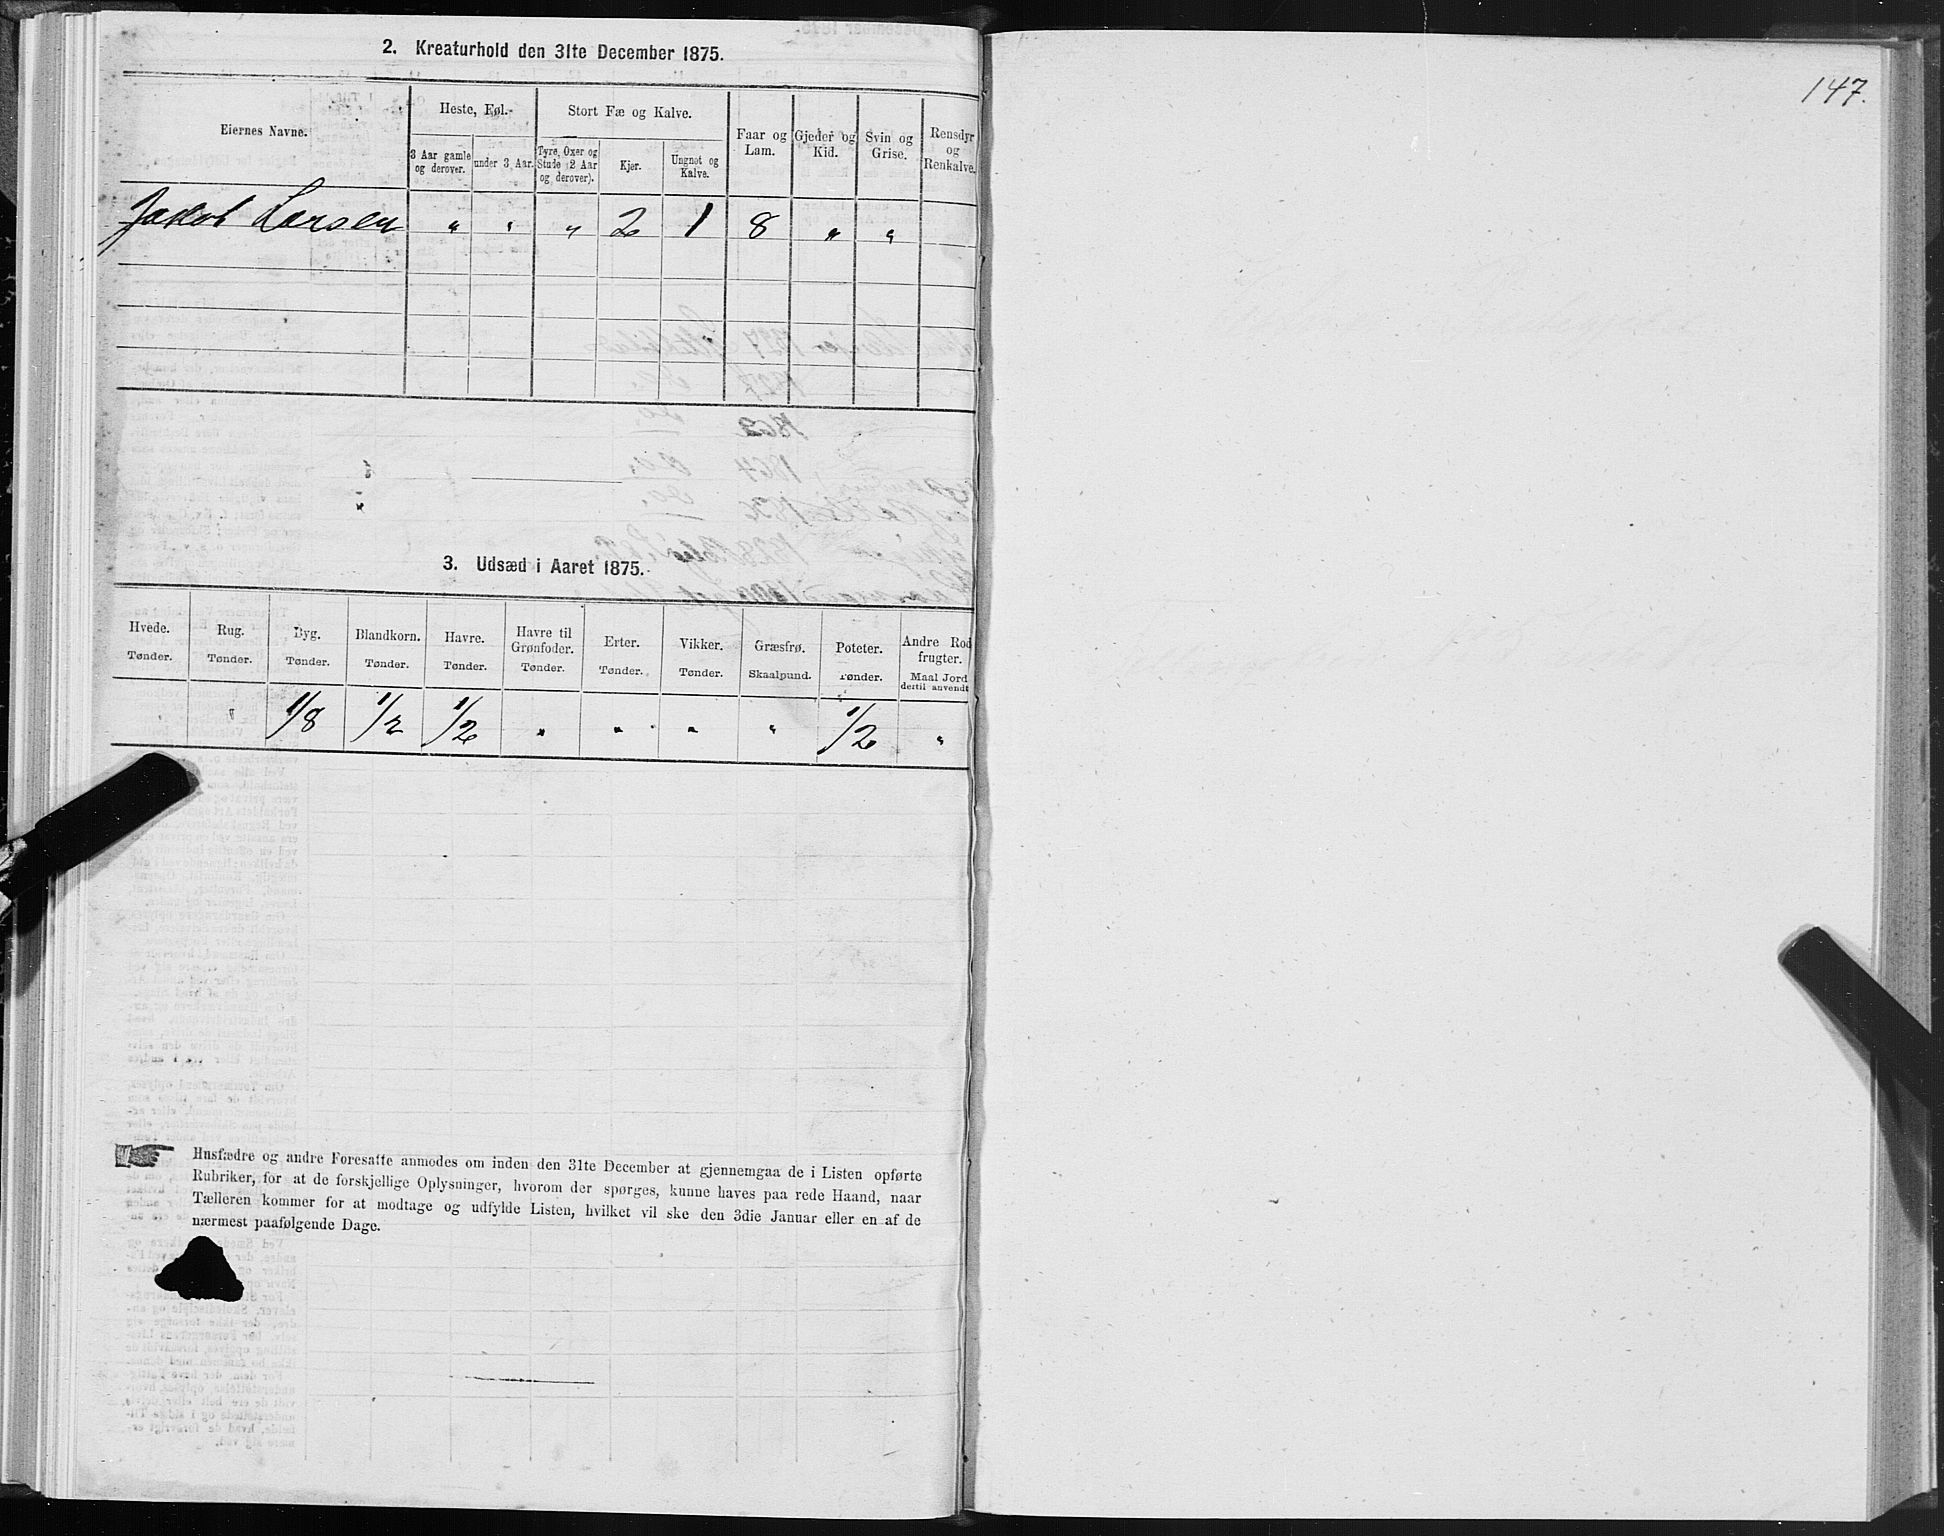 2. Kreaturhold den 31te December 1875.
Eiernes Navne.
Heste, Føl.
Stort Fæ og Kalve.
3 Aar gamle og derover.
under 3 Aar.
Tyre, Oxer og Stude (2 Aar og derover).
Kjer.
Ungnøt og Kalve.
Faar og Lam.
Gjeder og Kid.
Svin og Grise.
Rensdyr og Renkalve.
Jakob Larsen " " " 2 1 8 " "
3. Udsæd i Aaret 1875.
Hvede. Tønder.
Rug. Tønder.
Byg. Tønder.
Blandkorn. Tønder.
Havre. Tønder.
Havre til Grønfoder. Tønder.
Erter. Tønder.
Vikker. Tønder.
Græsfrø. Skaalpund.
Poteter. Tønder.
Andre Rodfrugter. Maal Jord dertil anvendt
" " 1/8 1/2 1/2 " " " " 1/2 "
Husfædre og andre Foresatte anmodes om inden den 31te December at gjennemgaa de i Listen opførte
Rubriker, for at de forskjellige Oplysninger, hvorom der spørges, kunne haves paa rede Haand, naar
Tælleren kommer for at modtage og udfylde Listen, hvilket vil ske den 3die Januar eller en af de
nærmest paafølgende Dage.
147.